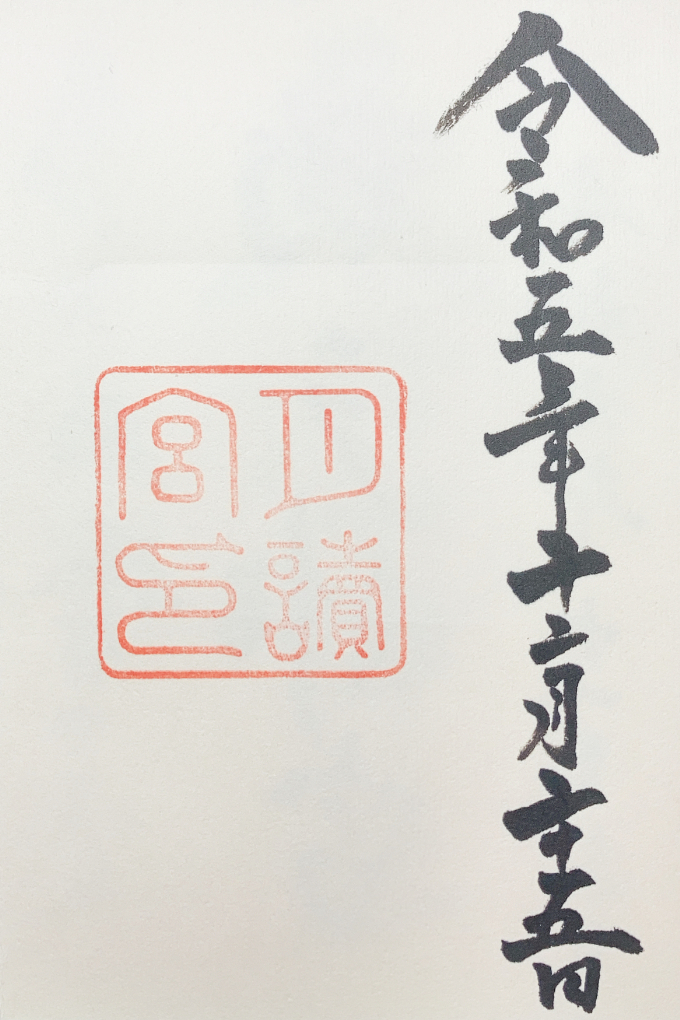 令和五年十二月二十五日
月讀
宮印